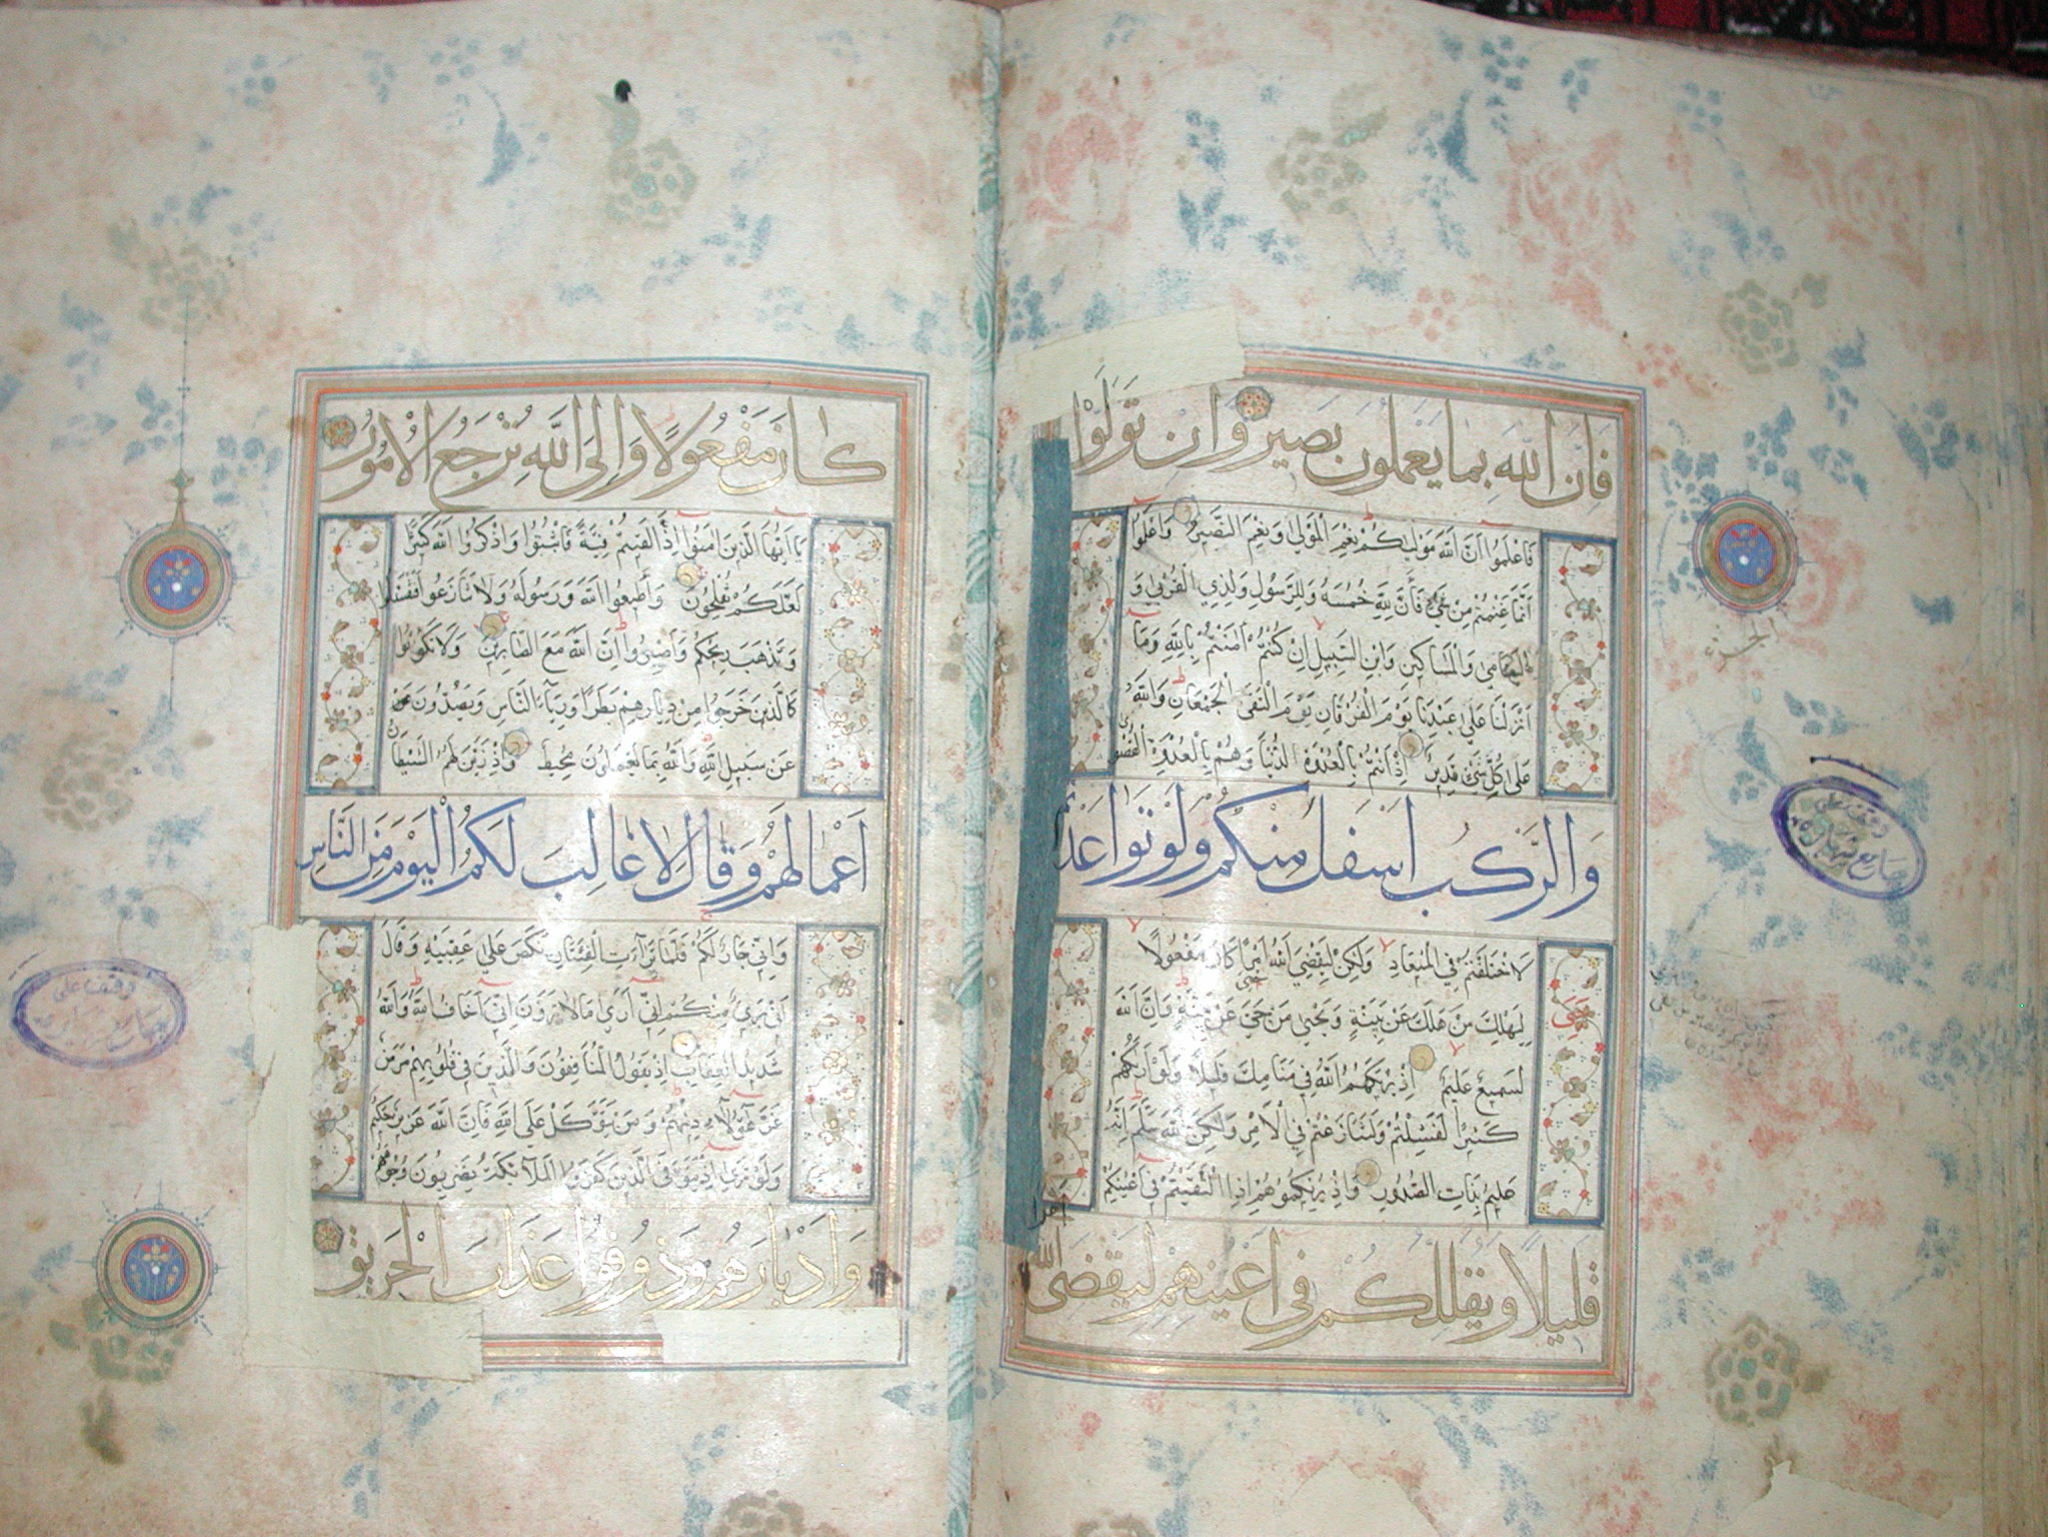 فَاِنَّ اللّٰهَ بِمَا يَعْمَلُونَ بَصِيرٌ وَاِنْ تَوَلَّوْا
فَاعْلَمُوا اَنَّ اللّٰهَ مَوْلٰيكُمْ نِعْمَ الْمَوْلٰى وَنِعْمَ النَّصِيرُ وَاعْلَمُوا
اَنَّمَا غَنِمْتُمْ مِنْ شَيْءٍ فَاَنَّ لِلّٰهِ خُمُسَهُ وَلِلرَّسُولِ وَلِذِي الْقُرْبٰى وَ
الْيَتَامٰى وَالْمَسَاكِينِ وَابْنِ السَّبِيلِ اِنْ كُنْتُمْ اٰمَنْتُمْ بِاللّٰهِ وَمَا
اَنْزَلْنَا عَلٰى عَبْدِنَا يَوْمَ الْفُرْقَانِ يَوْمَ الْتَقَى الْجَمْعَانِ وَاللّٰهُ
عَلٰى كُلِّ شَيْءٍ قَدِيرٌ اِذْ اَنْتُمْ بِالْعُدْوَةِ الدُّنْيَا وَهُمْ بِالْعُدْوَةِ الْقُصْوٰى
وَالرَّكْبُ اَسْفَلَ مِنْكُمْ وَلَوْ تَوَاعَدْتُمْ
لَاخْتَلَفْتُمْ فِي الْمِيعَادِ وَلٰكِنْ لِيَقْضِيَ اللّٰهُ اَمْرًا كَانَ مَفْعُولًا
لِيَهْلِكَ مَنْ هَلَكَ عَنْ بَيِّنَةٍ وَيَحْيٰى مَنْ حَيَّ عَنْ بَيِّنَةٍ وَاِنَّ اللّٰهَ
لَسَمِيعٌ عَلِيمٌ اِذْ يُرِيكَهُمُ اللّٰهُ فِي مَنَامِكَ قَلِيلًا وَلَوْ اَرٰيكَهُمْ
كَثِيرًا لَفَشِلْتُمْ وَلَتَنَازَعْتُمْ فِي الْاَمْرِ وَلٰكِنَّ اللّٰهَ سَلَّمَ اِنَّهُ
عَلِيمٌ بِذَاتِ الصُّدُورِ وَاِذْ يُرِيكُمُوهُمْ اِذِ الْتَقَيْتُمْ فِي اَعْيُنِكُمْ
قَلِيلًا وَيُقَلِّلُكُمْ فِي اَعْيُنِهِمْ لِيَقْضِيَ اللّٰهُ
اَمْرًا
حَيَّ
الجزء
وقف على
جامع
كَانَ مَفْعُولًا وَاِلَى اللّٰهِ تُرْجَعُ الْاُمُورُ
يَا اَيُّهَا الَّذِينَ اٰمَنُوا اِذَا لَقِيتُمْ فِئَةً فَاثْبُتُوا وَاذْكُرُوا اللّٰهَ كَثِيرًا
لَعَلَّكُمْ تُفْلِحُونَ وَاَطِيعُوا اللّٰهَ وَرَسُولَهُ وَلَا تَنَازَعُوا فَتَفْشَلُوا
وَتَذْهَبَ رِيحُكُمْ وَاصْبِرُوا اِنَّ اللّٰهَ مَعَ الصَّابِرِينَ وَلَا تَكُونُوا
كَالَّذِينَ خَرَجُوا مِنْ دِيَارِهِمْ بَطَرًا وَرِئَاءَ النَّاسِ وَيَصُدُّونَ عَنْ
عَنْ سَبِيلِ اللّٰهِ وَاللّٰهُ بِمَا يَعْمَلُونَ مُحِيطٌ وَاِذْ زَيَّنَ لَهُمُ الشَّيْطَانُ
اَعْمَالَهُمْ وَقَالَ لَا غَالِبَ لَكُمُ الْيَوْمَ مِنَ النَّاسِ
وَاِنِّي جَارٌ لَكُمْ فَلَمَّا تَرَاءَتِ الْفِئَتَانِ نَكَصَ عَلٰى عَقِبَيْهِ وَقَالَ
اِنِّي بَرِيءٌ مِنْكُمْ اِنِّي اَرٰى مَا لَا تَرَوْنَ اِنِّي اَخَافُ اللّٰهَ وَاللّٰهُ
شَدِيدُ الْعِقَابِ اِذْ يَقُولُ الْمُنَافِقُونَ وَالَّذِينَ فِي قُلُوبِهِمْ مَرَضٌ
غَرَّ هٰؤُلَاءِ دِينُهُمْ وَمَنْ يَتَوَكَّلْ عَلَى اللّٰهِ فَاِنَّ اللّٰهَ عَزِيزٌ حَكِيمٌ
وَلَوْ تَرٰى اِذْ يَتَوَفَّى الَّذِينَ كَفَرُوا الْمَلٰٓئِكَةُ يَضْرِبُونَ وُجُوهَهُمْ
وَاَدْبَارَهُمْ وَذُوقُوا عَذَابَ الْحَرِيقِ
وقف على